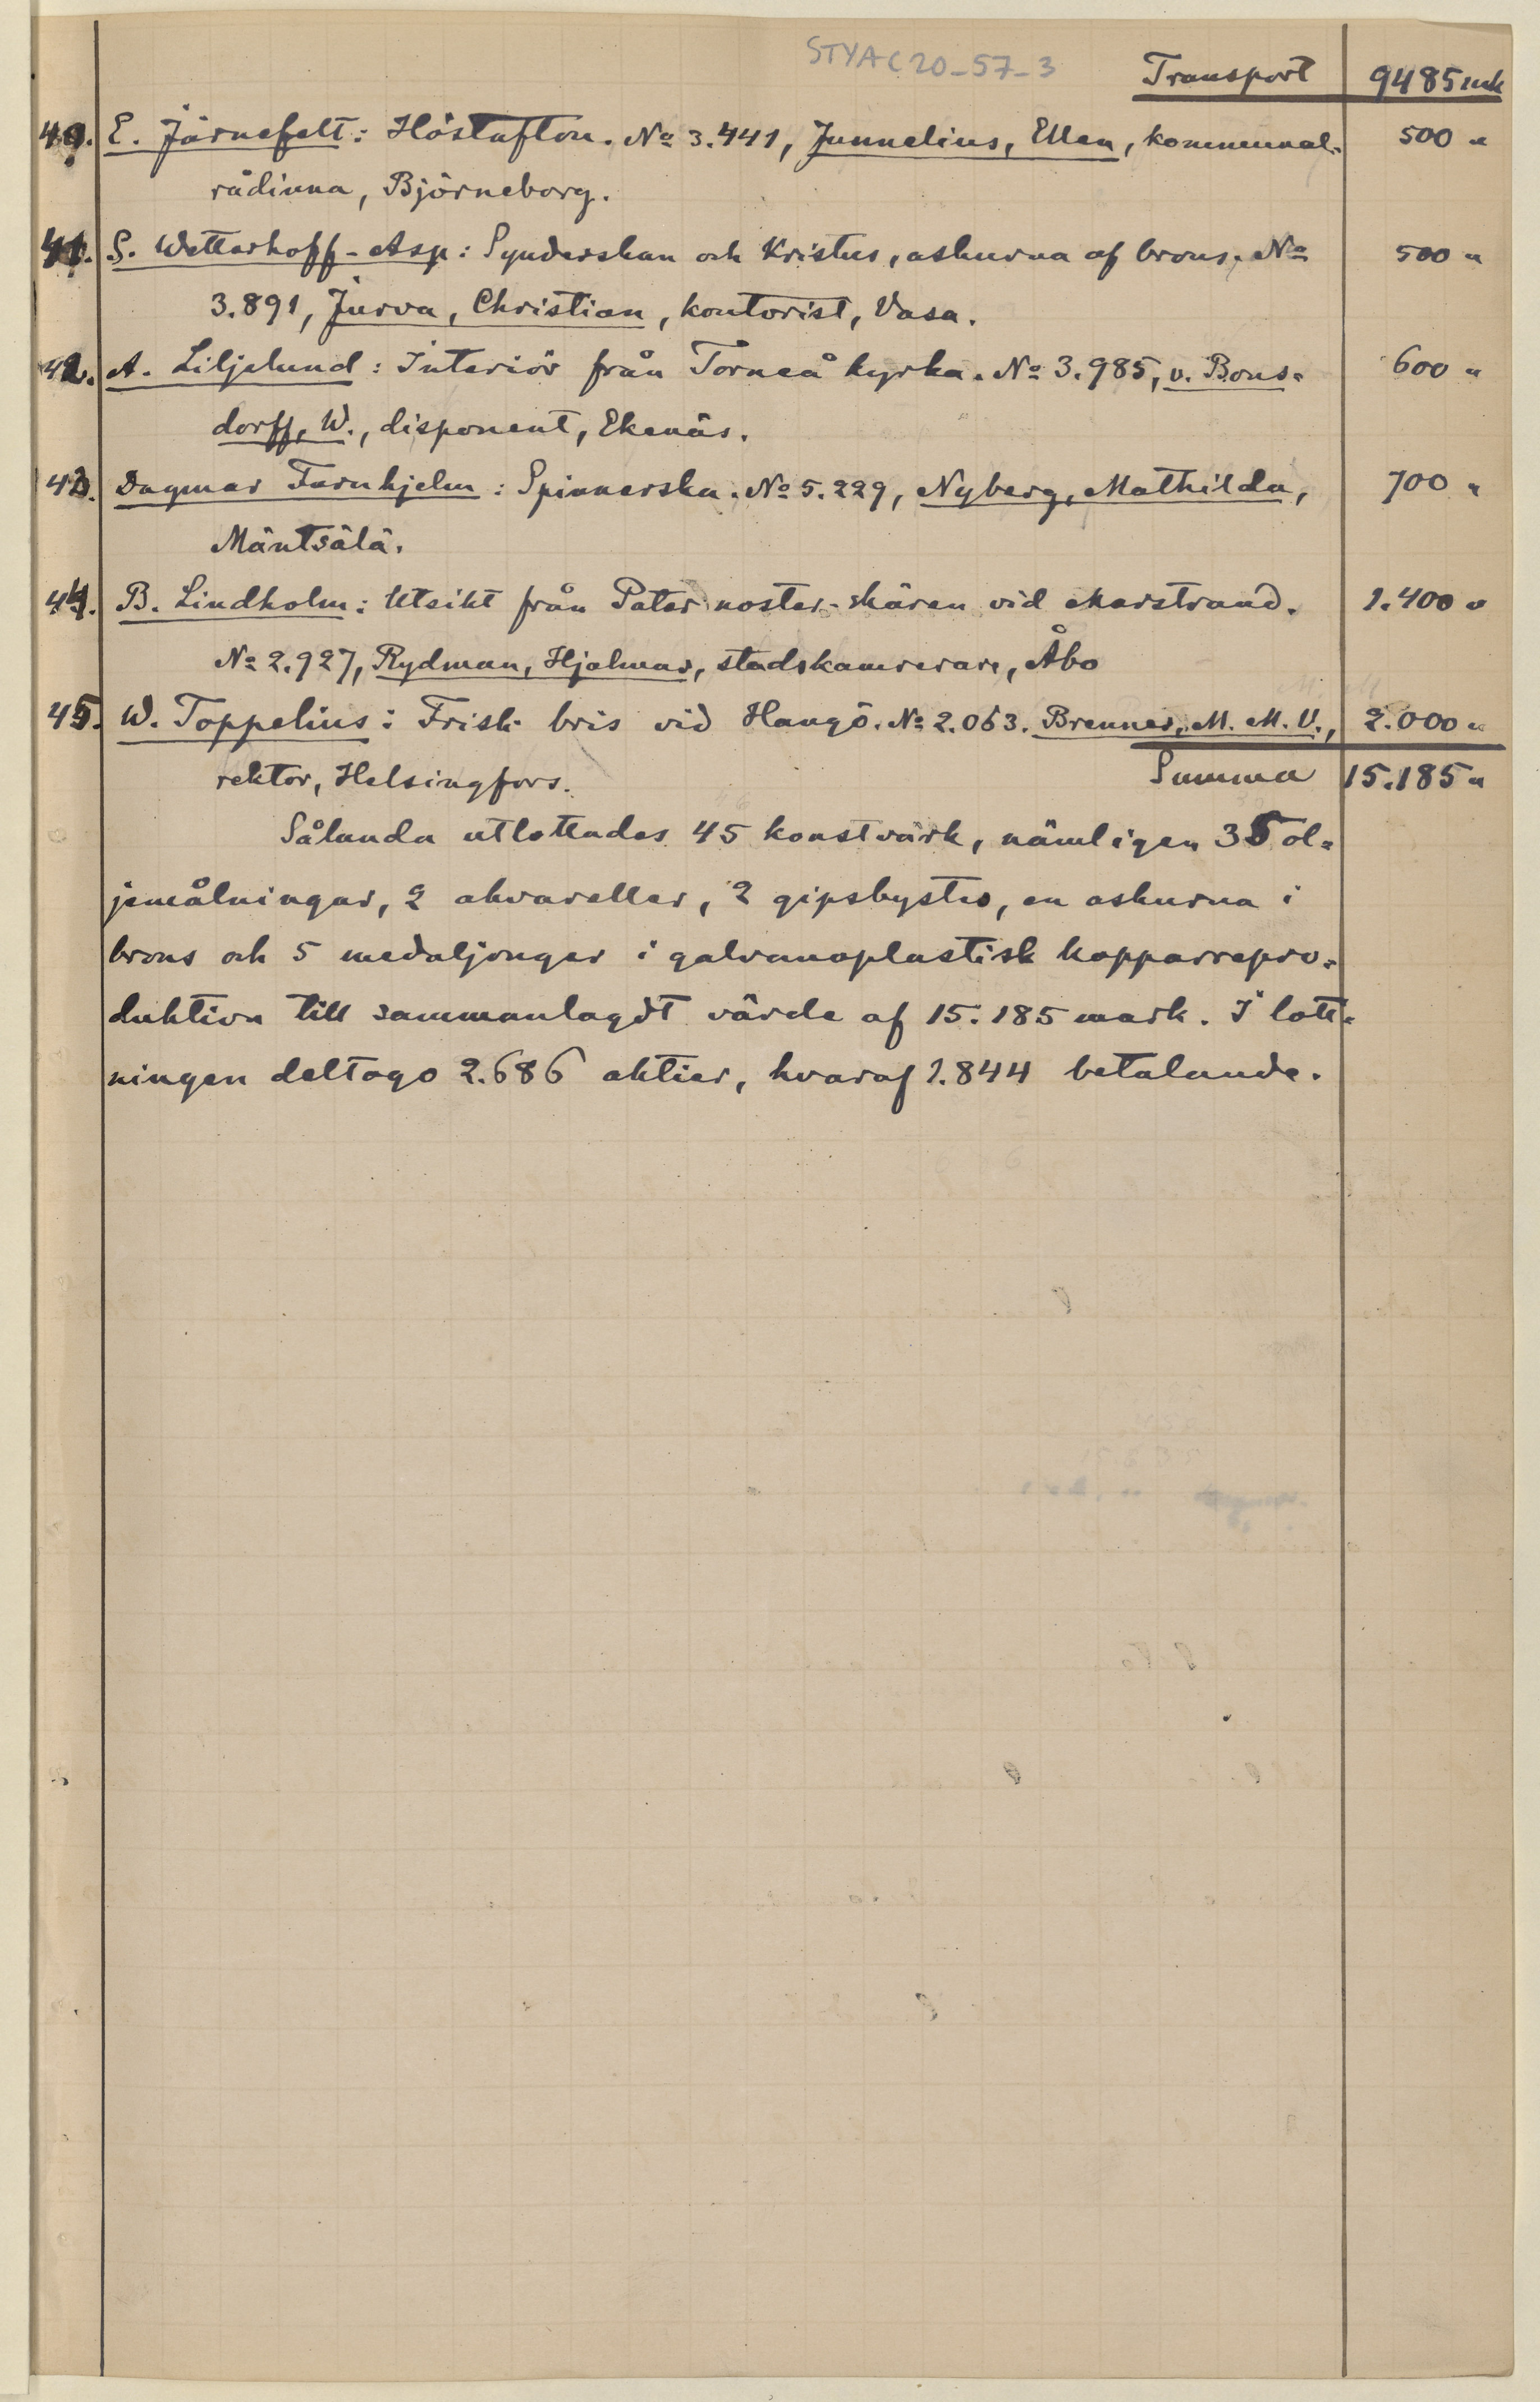 STYA C 20-57-3
Transport 9485 mk
40. E. Järnefelt: Höstafton. No 3.441, Junnelius, Ellen, kommunal- 500 "
rådinna, Björneborg.
41. G. Wetterhoff-Asp: Synderskan och Kristus, askurna af brons. No 500 "
3.891, Jurva, Christian, kontorist, Vasa.
42. A. Liljelund: Interiör från Torneå kyrka. No 3.985, v. Bons- 600 "
dorff, W., disponent, Ekenäs.
43. Dagmar Furuhjelm: Spinnerska. No 5.229, Nyberg, Mathilda, 700 "
Mäntsälä.
44. B. Lindholm: Utsikt från Pater noster-skären vid Marstrand. 1.400 "
No 2.927, Rydman, Hjalmar, stadskamrerare, Åbo
45. W. Toppelius: Frisk bris vid Hangö. No 2.063. Brenner, M. M. V., 2.000 "
rektor, Helsingfors. Summa 15.185 "
Sålunda utlottades 45 konstvärk, nämligen 35 ol-
jemålningar, 2 akvareller, 2 gipsbyster, en askurna i
brons och 5 medaljonger i galvanoplastisk kopparrepro-
duktion till sammanlagdt värde af 15.185 mark. I lott-
ningen deltogo 2.686 aktier, hvaraf 1.844 betalande.